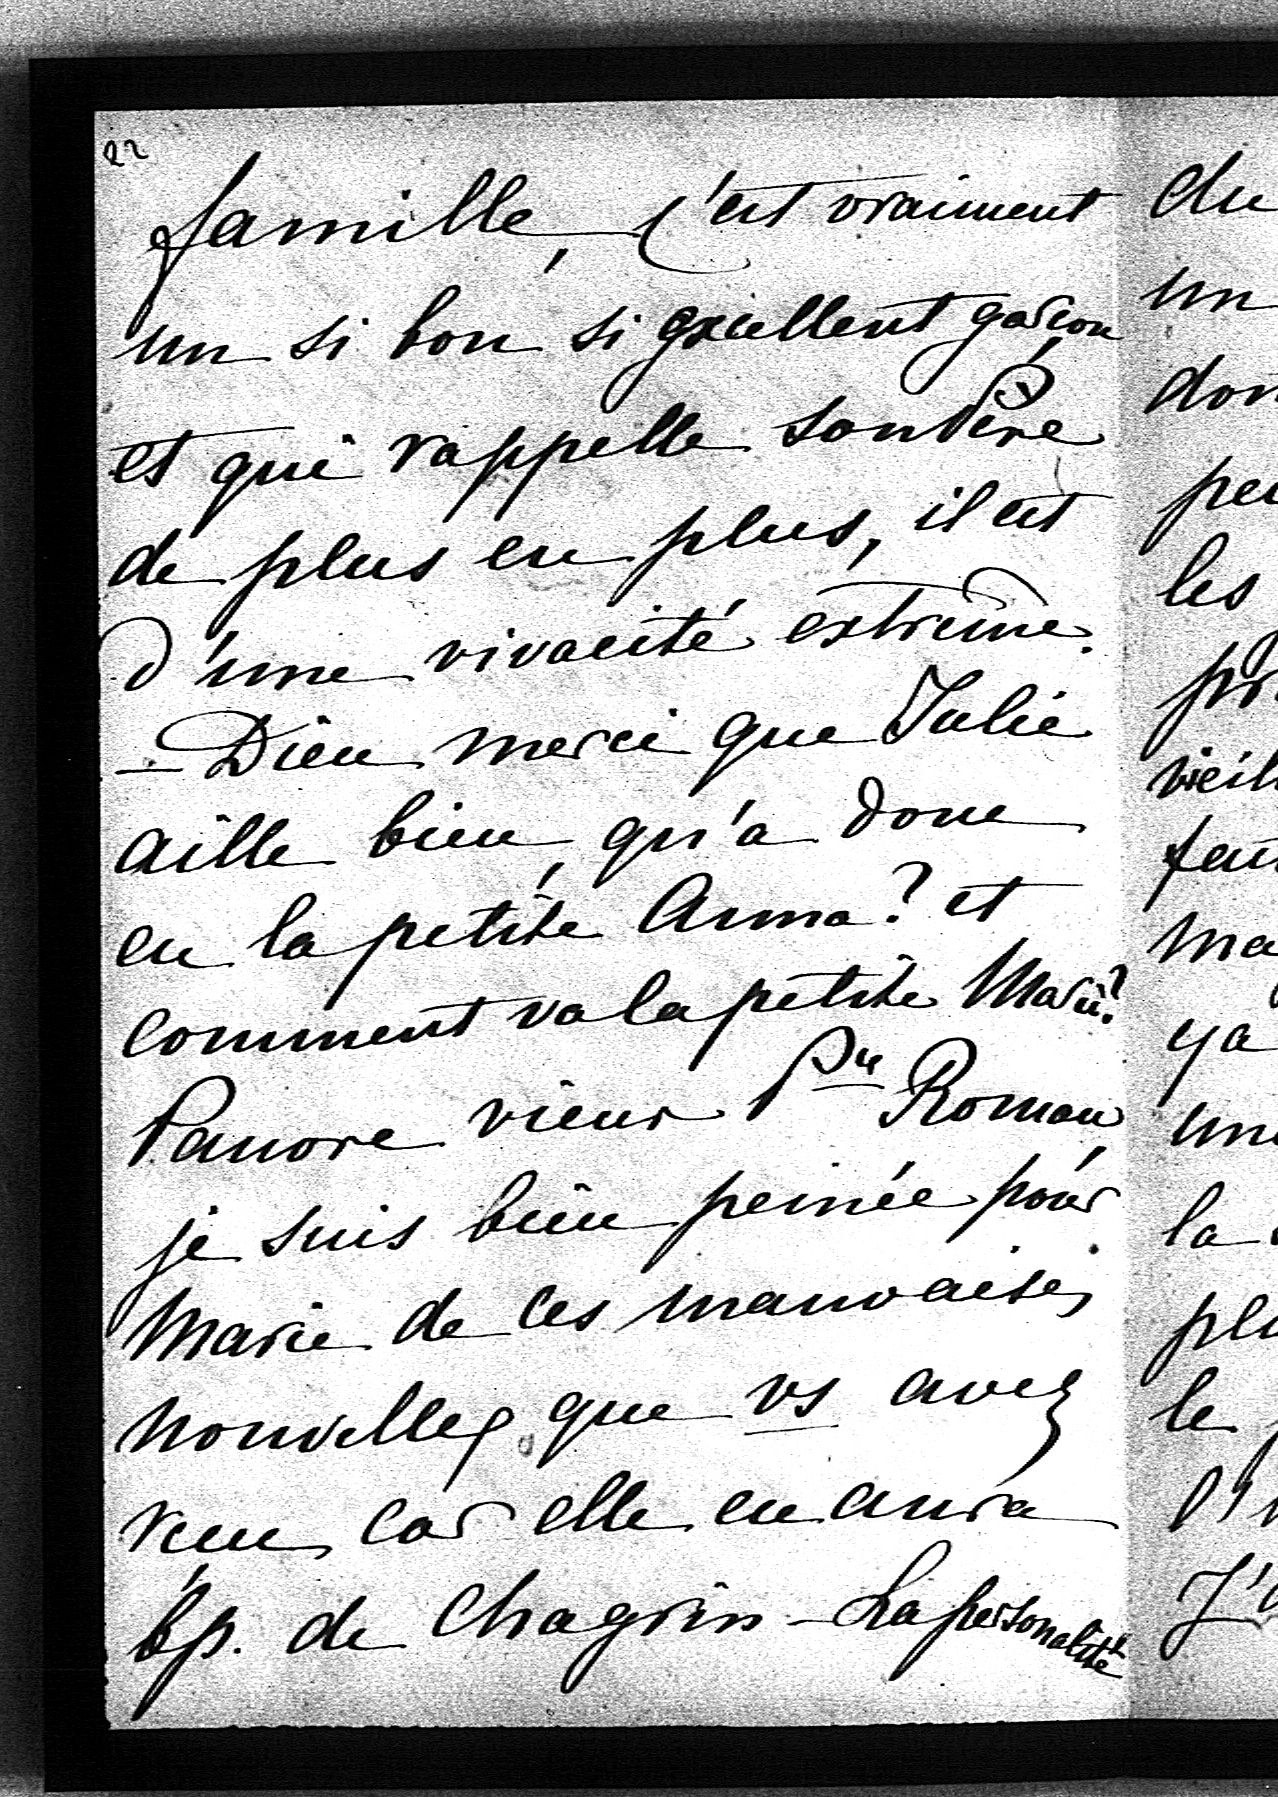 22
famille, c'est vraiment
un si bon si excellent garçon
et qui rappelle son Père
de plus en plus, il est
d'une vivacité extrême.
– Dieu merci que Julie
aille bien, qu'a donc
eu la petite Anna? et
comment va la petite Marie?
Pauvre vieux Pce Roman,
je suis bien peinée pour
Marie de ces mauvaises
nouvelles que vs avez
reçu, car elle en aura
bp. de chagrin – La personalité
du
un
don
peu
les
pr
vieil
fau
ma
ya
un
la
plu
le
l'
J'